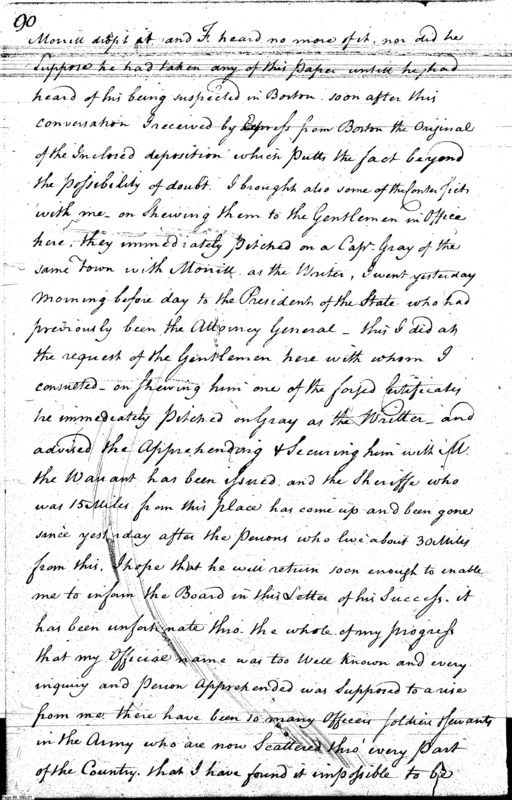 90
Morrill dropt it and I heard no more of it, nor did he
Suppose he had taken any of this Paper untill he had
heard of his being suspected in Boston. soon after this
conversation I received by Express from Boston the Original
of the Inclosed deposition which Putts the fact beyond
the Possibility of doubt. I brought also some of the
with me on Shewing them to the Gentlemen in Office
here, they immediately Pitched on a Capt. Gray of the
same Town with Morrill as the Writer, I went yesterday
morning before day to the President of the State who had
previously been the Attorney General – this I did at
the request of the Gentlemen here with whom I
consulted – on Shewing him one of the forged Certificates
he immediately Pitched on Gray as the Writter – and
advised the Apprehending & Securing him with M.
the Warrant has been issued and the Sheriffe who
was 15 Miles from this place has come up and been gone
since yesterday after the Persons who live about 30 Miles
from this, I hope that he will return soon enough to enable
me to inform the Board in this Letter of his Success. it
has been unfortunate thro. the whole of my Progress
that my Official name was too Well Known and every
inquiry and Person Apprehended was Supposed to arise
from me. there have been so many Officers soldiers & servants
in the Army who are now Scattered thro' every Part
of the Country, that I have found it impossible to be